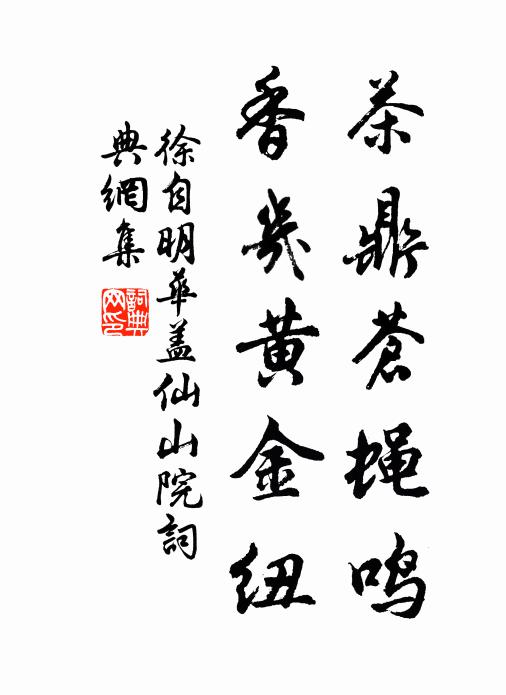 茶鼎苍蝇鸣
香幾黄金纽
徐自明華盖仙山院詞
典網集
詞典网印